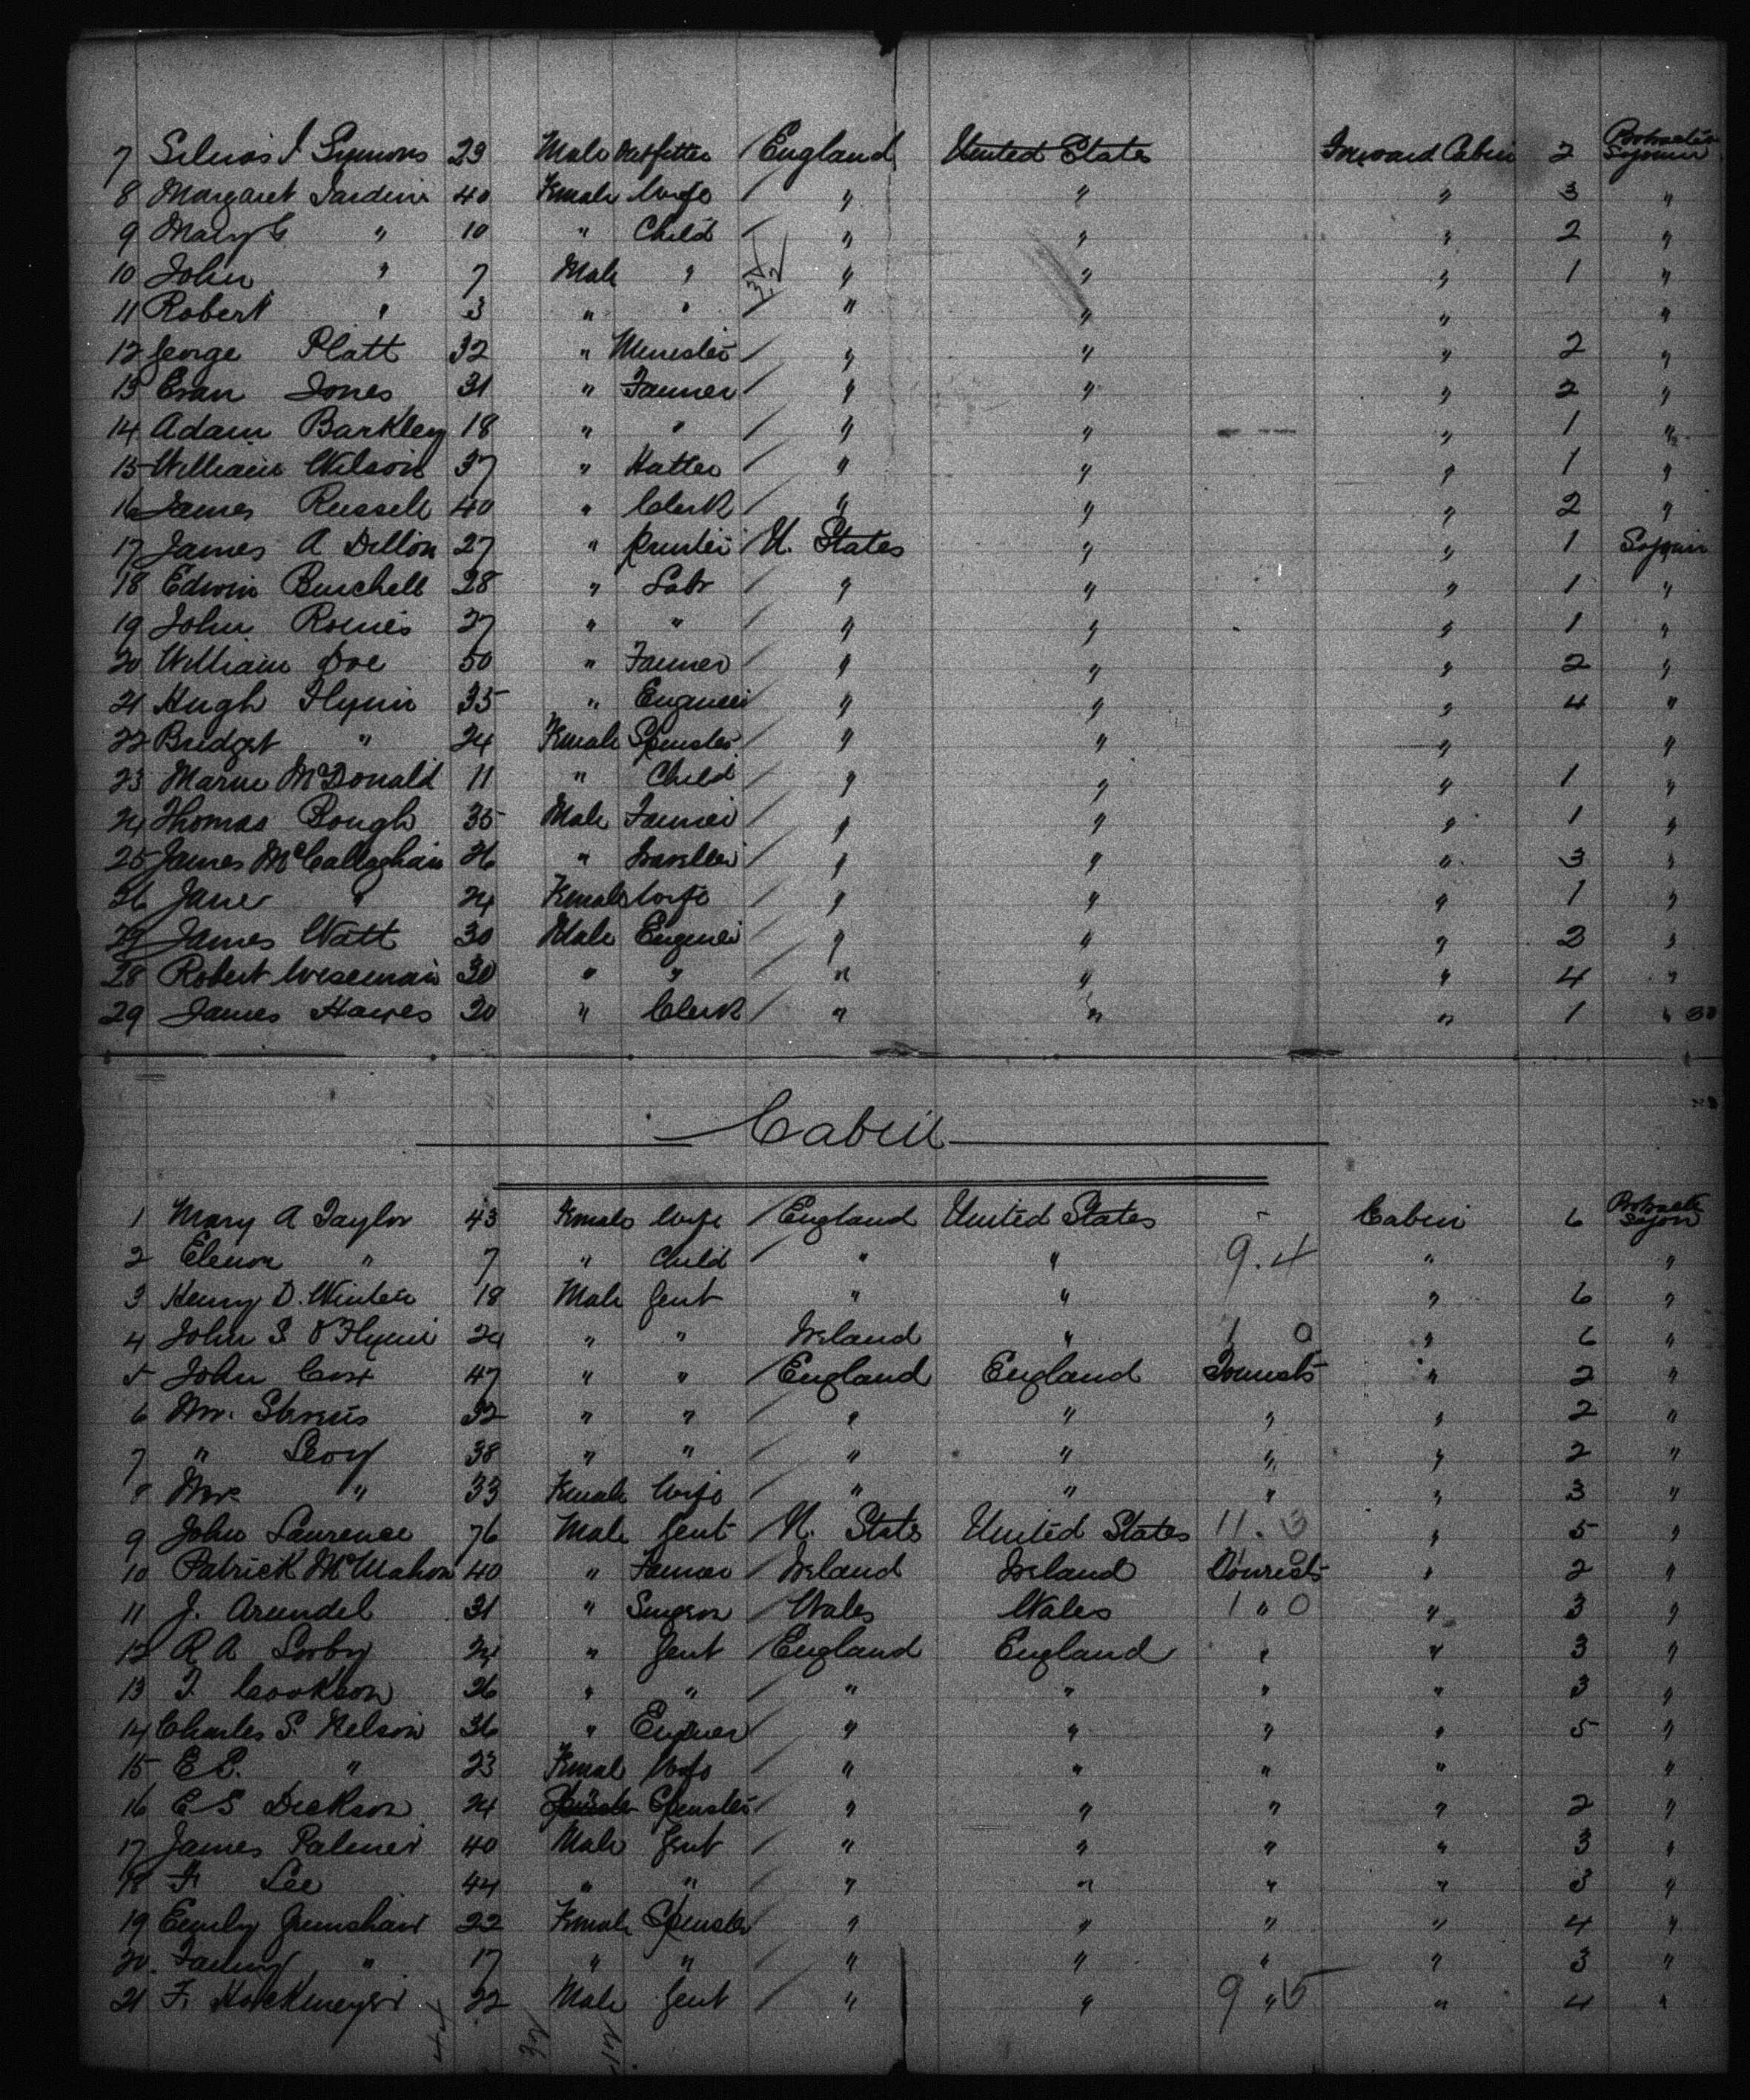 7 Silvios J Symons 29 Male Outfitter / England United States Forward Cabin 2 Protracted Sojourn
8 Margaret Jardine 40 Female Wife / " " " 3 "
9 Mary G " 10 " Child / " " " 2 "
10 John " 7 Male " " " " 1 "
11 Robert " 3 " " / " " " "
12 George Platt 32 " Minister / " " " 2 "
13 Evan Jones 31 " Farmer / " " " 2 "
14 Adam Barkley 18 " " / " " " 1 "
15 William Wilson 37 " Hatter / " " " 1 "
16 James Russell 40 " Clerk / " " " 2 "
17 James A Dillon 27 " Printer / U. States " " 1 Sojourn
18 Edwin Burchell 28 " Labr / " " " 1 "
19 John 27 " " / " " " 1 "
20 William Doe 50 " Farmer / " " " 2 "
21 Hugh Flynn 35 " Engineer / " " " 4 "
22 Bridget " 24 Female Spinster / " " " "
23 McDonald 11 " Child / " " " 1 "
24 Thomas Bough 35 Male Farmer / " " " 1 "
25 James McCallaghan 26 " Traveller / " " " 3 "
26 Jane " 24 Female Wife / " " " 1 "
27 James Watt 30 Male Engineer / " " " 2 "
28 Robert Wiseman 30 " " / " " " 4 "
29 James Hawes 20 " Clerk / " " " 1 " 30
Cabin
1 Mary A Taylor 43 Female Wife / England United States - Cabin 6 Protracted Sojourn
2 Elenor " 7 " Child / " " 9.4 " "
3 Henry D. Winter 18 Male Gent " " " 6 "
4 John S O'Flynn 24 " " Ireland " 1 0 " 6 "
5 John Cox 47 " " England England Tourists " 2 "
6 Mr. 32 " " / " " " " 2 "
7 " Levy 38 " " / " " " " 2 "
8 Mrs " 33 Female Wife / " " " " 3 "
9 John Laurence 76 Male Gent / U. States United States 11.3 " 5 "
10 Patrick McMahon 40 " Farmer / Ireland Ireland Tourists " 2 "
11 J. Arundel 31 " Surgeon / Wales Wales 1 " 0 " 3 "
12 R A Sorby 24 " Gent / England England " " 3 "
13 T. Cookson 26 " " / " " " " 3 "
14 Charles S. Nelson 36 " Engineer / " " " " 5 "
15 E P. " 23 Female Wife / " " " " "
16 C S Dickson 24 Spinster / " " " " 2 "
17 James Palmer 40 Male Gent / " " " " 3 "
18 Lee 44 " " / " " " " 3 "
19 Emily Grimshaw 22 Female Spinster / " " " " 4 "
20. Fanny " 17 " " / " " " " 3 "
21 F. Hockmeyer 22 Male Gent / " " 9 " 5 " 4 "